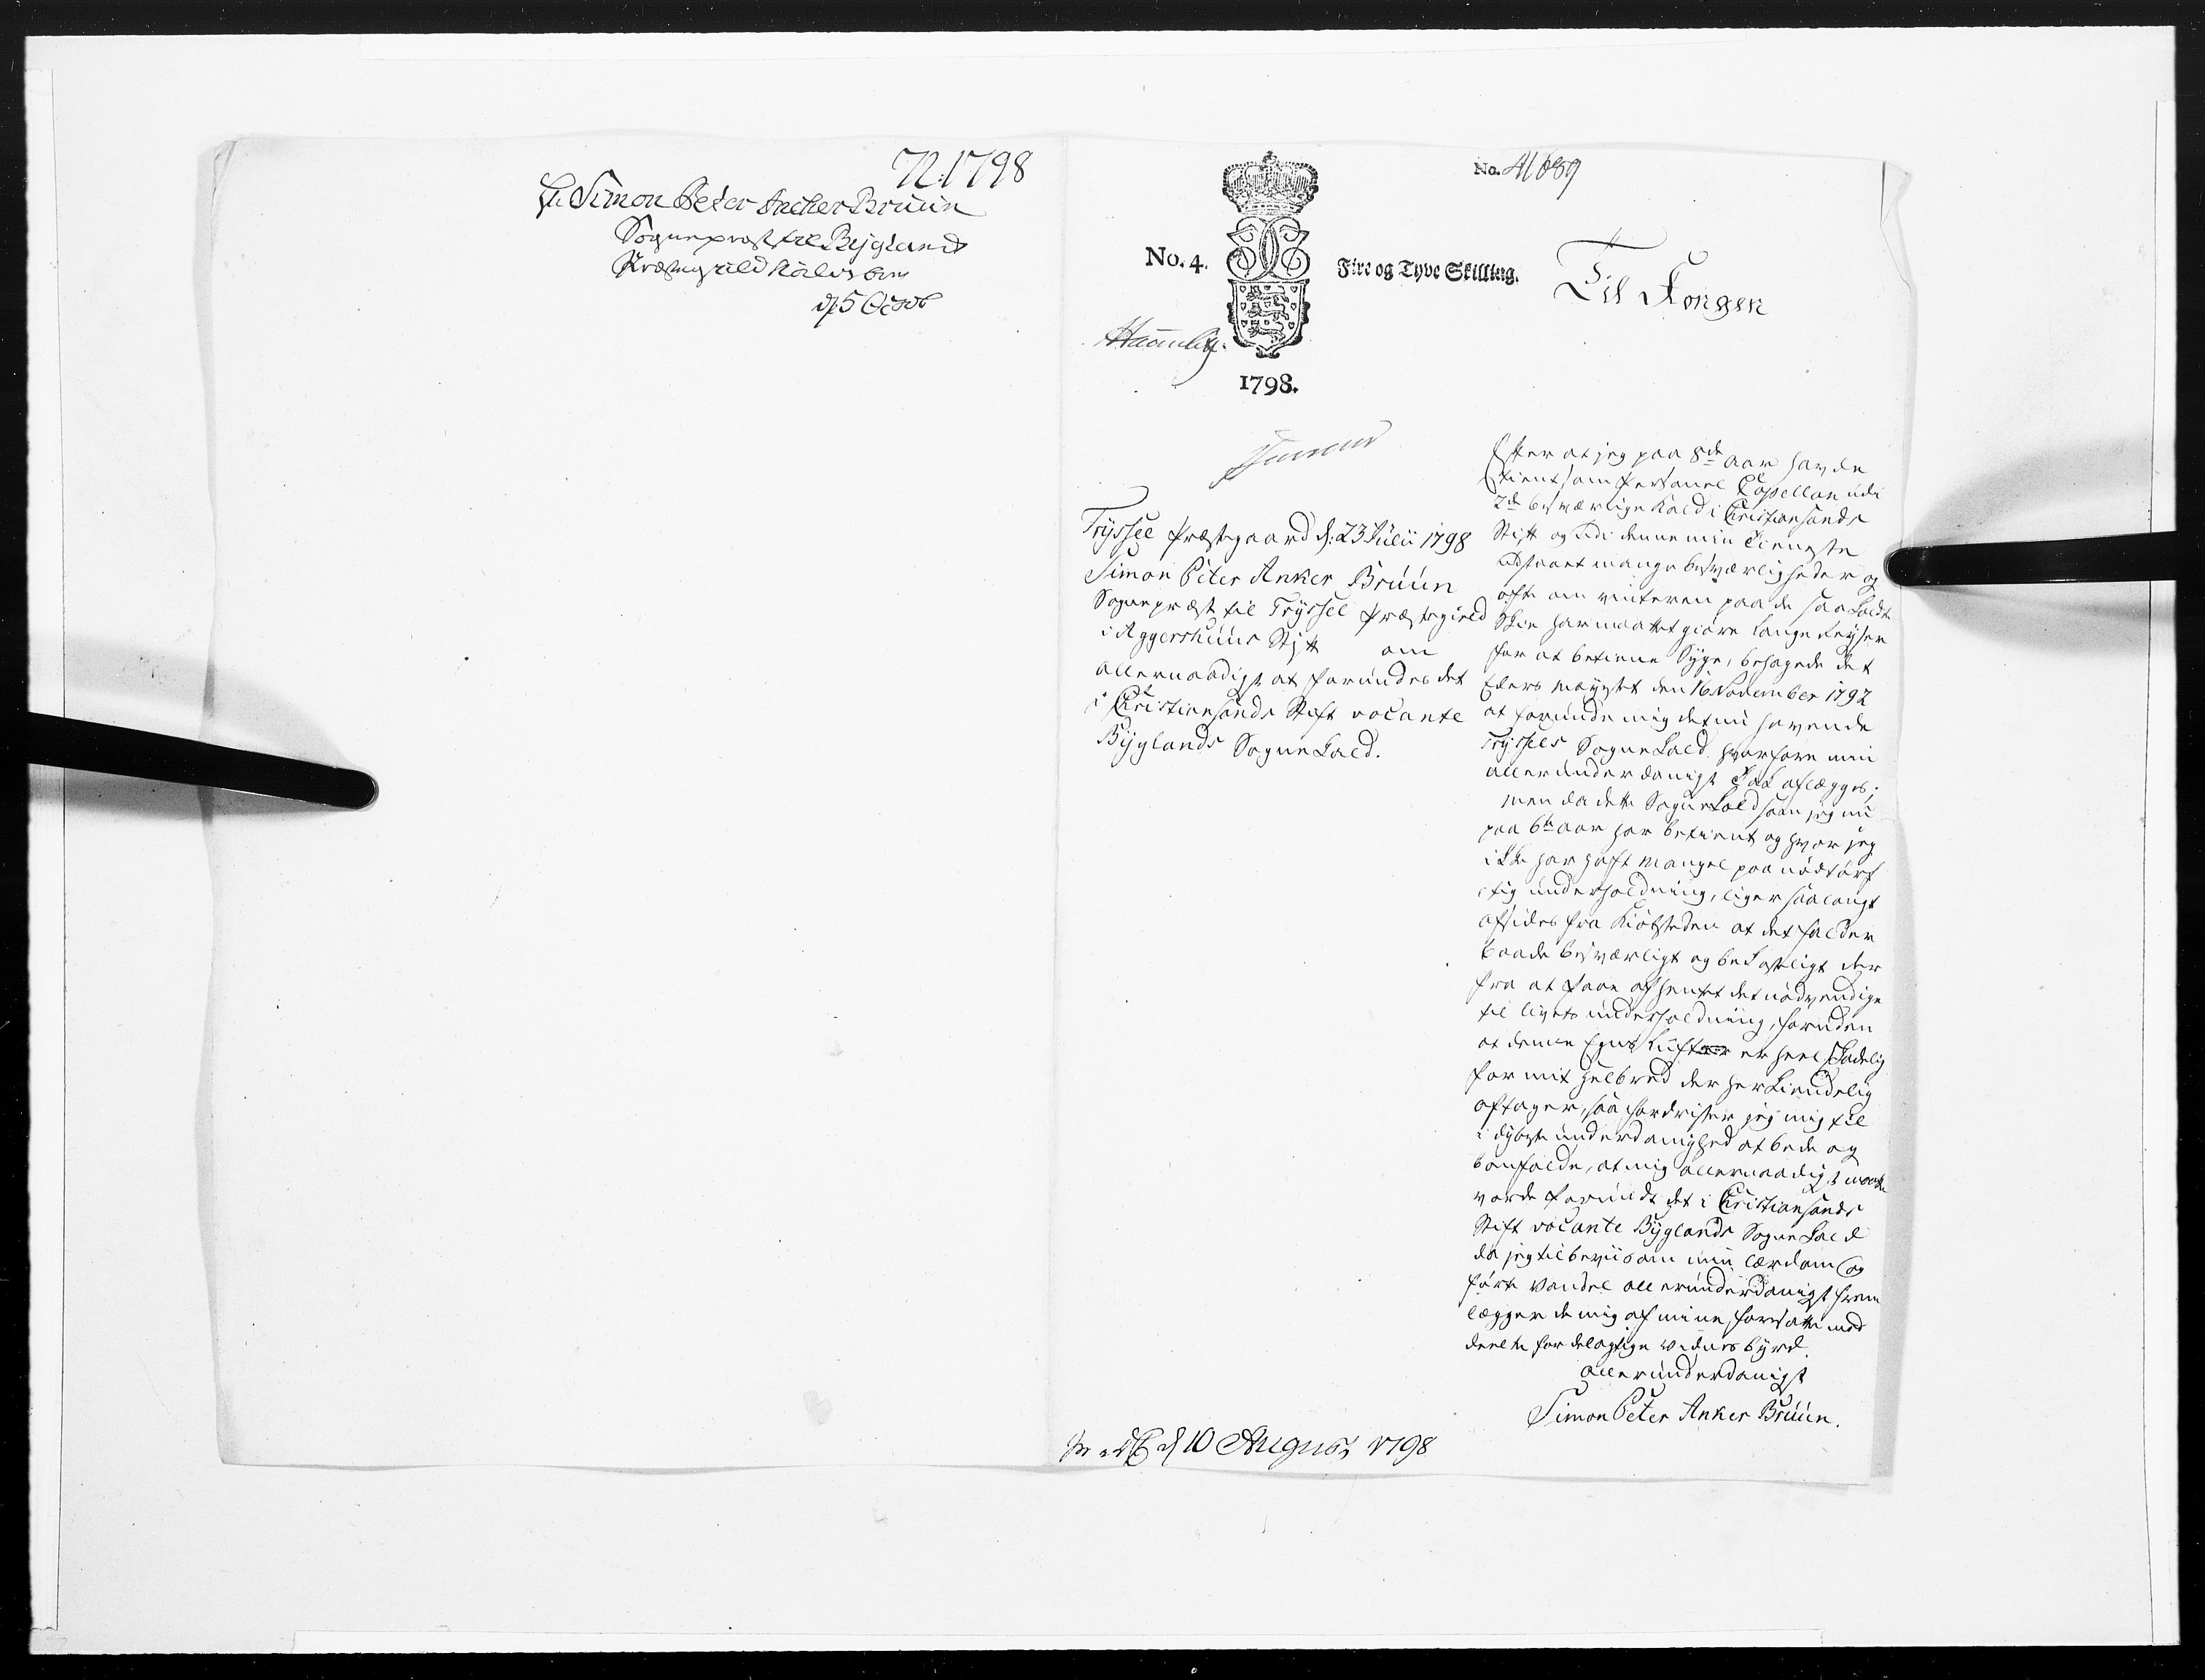 72. 1798
Hr Simon Peter Ancher Bruun
Sogneprest til Bygland
Præstegield
d 5 Octob
No. 41689
No. 4.
Fire og Tyve Skilling.
Til Kongen
1798.
Tryssel Præstegaard d: 23 Julii 1798
Simon Peter Anker Bruun
Sognepræst til Tryssel Præstegield
i Aggershuus Stift om
allernaadigst at forundes det
i Christiansands Stift vacante
Byglands Sognekald.
Efter at jeg paa 8de aar havde
tient som Personel Capellan udi
2de besværlige Kald i Christiansands
Stift og udi denne min Tieneste
udstaaet mange besværligheder og
ofte om vinteren paa de saa kaldte
Skie har maattet giøre lange Reyser
for at betiene Syge, behagede det
Eders Mayestet den 16 November 1792
at forunde mig det nu havende
Tryssels Sognekald hvorfore min
allerunderdanigst Tak aflægges;
men da dette Sognekald som jeg nu
paa 6te aar har betient og hvor jeg
ikke har haft mangel paa nødtørf
tig underholdning, ligger saa langt
afsides fra Kiøbsteden at det falder
baade besværligt og bekosteligt der
fra at faae afhentet det nødvendige
til livets underholdning, foruden
at denne Egns Luft er heel skadelig
for mit helbred der her kiendelig
aftager, saa fordrister jeg mig til
i dybeste underdanighed at bede og
bønfalde, at mig allernaadigst maatte
vorde forundt det i Christiansands
Stift vacante Byglands Sognekald
da jeg til beviis om min lærdom og
førte vandel allerunderdanigst frem
lægger de mig af mine foresatte med
deelte fordelagtige vidnesbyrd.
Allerunderdanigst
Simon Peter Anker Bruun.
d 10 August 1798